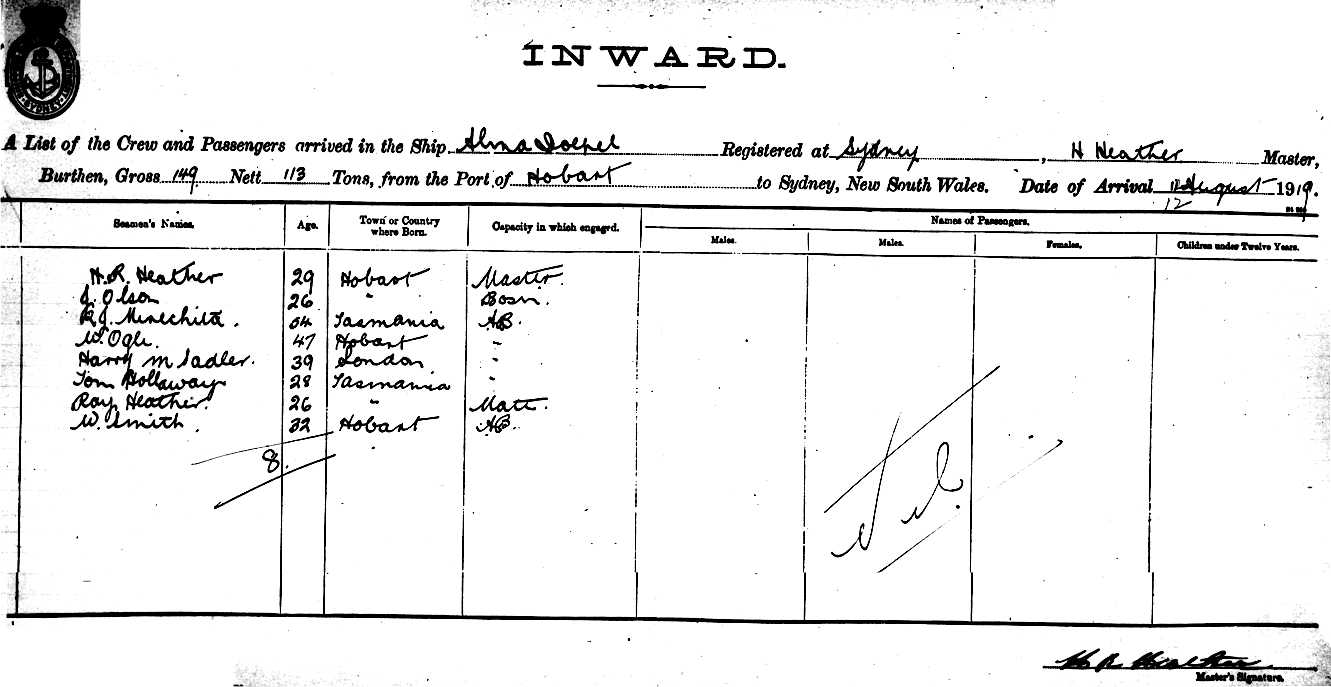 SYDNEY
INWARD.
A List of the Crew and Passengers arrived in the Ship Alma Doepel Registered at Sydney, H Heather Master,
Burthen, Gross 149 Nett 113 Tons, from the Port of Hobart to Sydney, New South Wales. Date of Arrival August 1919.
12
Seamen's Names. Age. Town or Country where Born. Capacity in which engaged. Names of Passengers.
Males. Males. Females. Children under Twelve Years.
H.R. Heather 29 Hobart Master.
J. Olson 26 " Bosn.
R.J. 54 Tasmania AB.
W. Ogle. 47 Hobart "
Harry M Sadler. 39 London "
Tom Hollaway 28 Tasmania "
Roy Heather. 26 " Mate.
W. Smith. 32 Hobart AB.
8.
Nil.
H R Heather
Master's Signature.